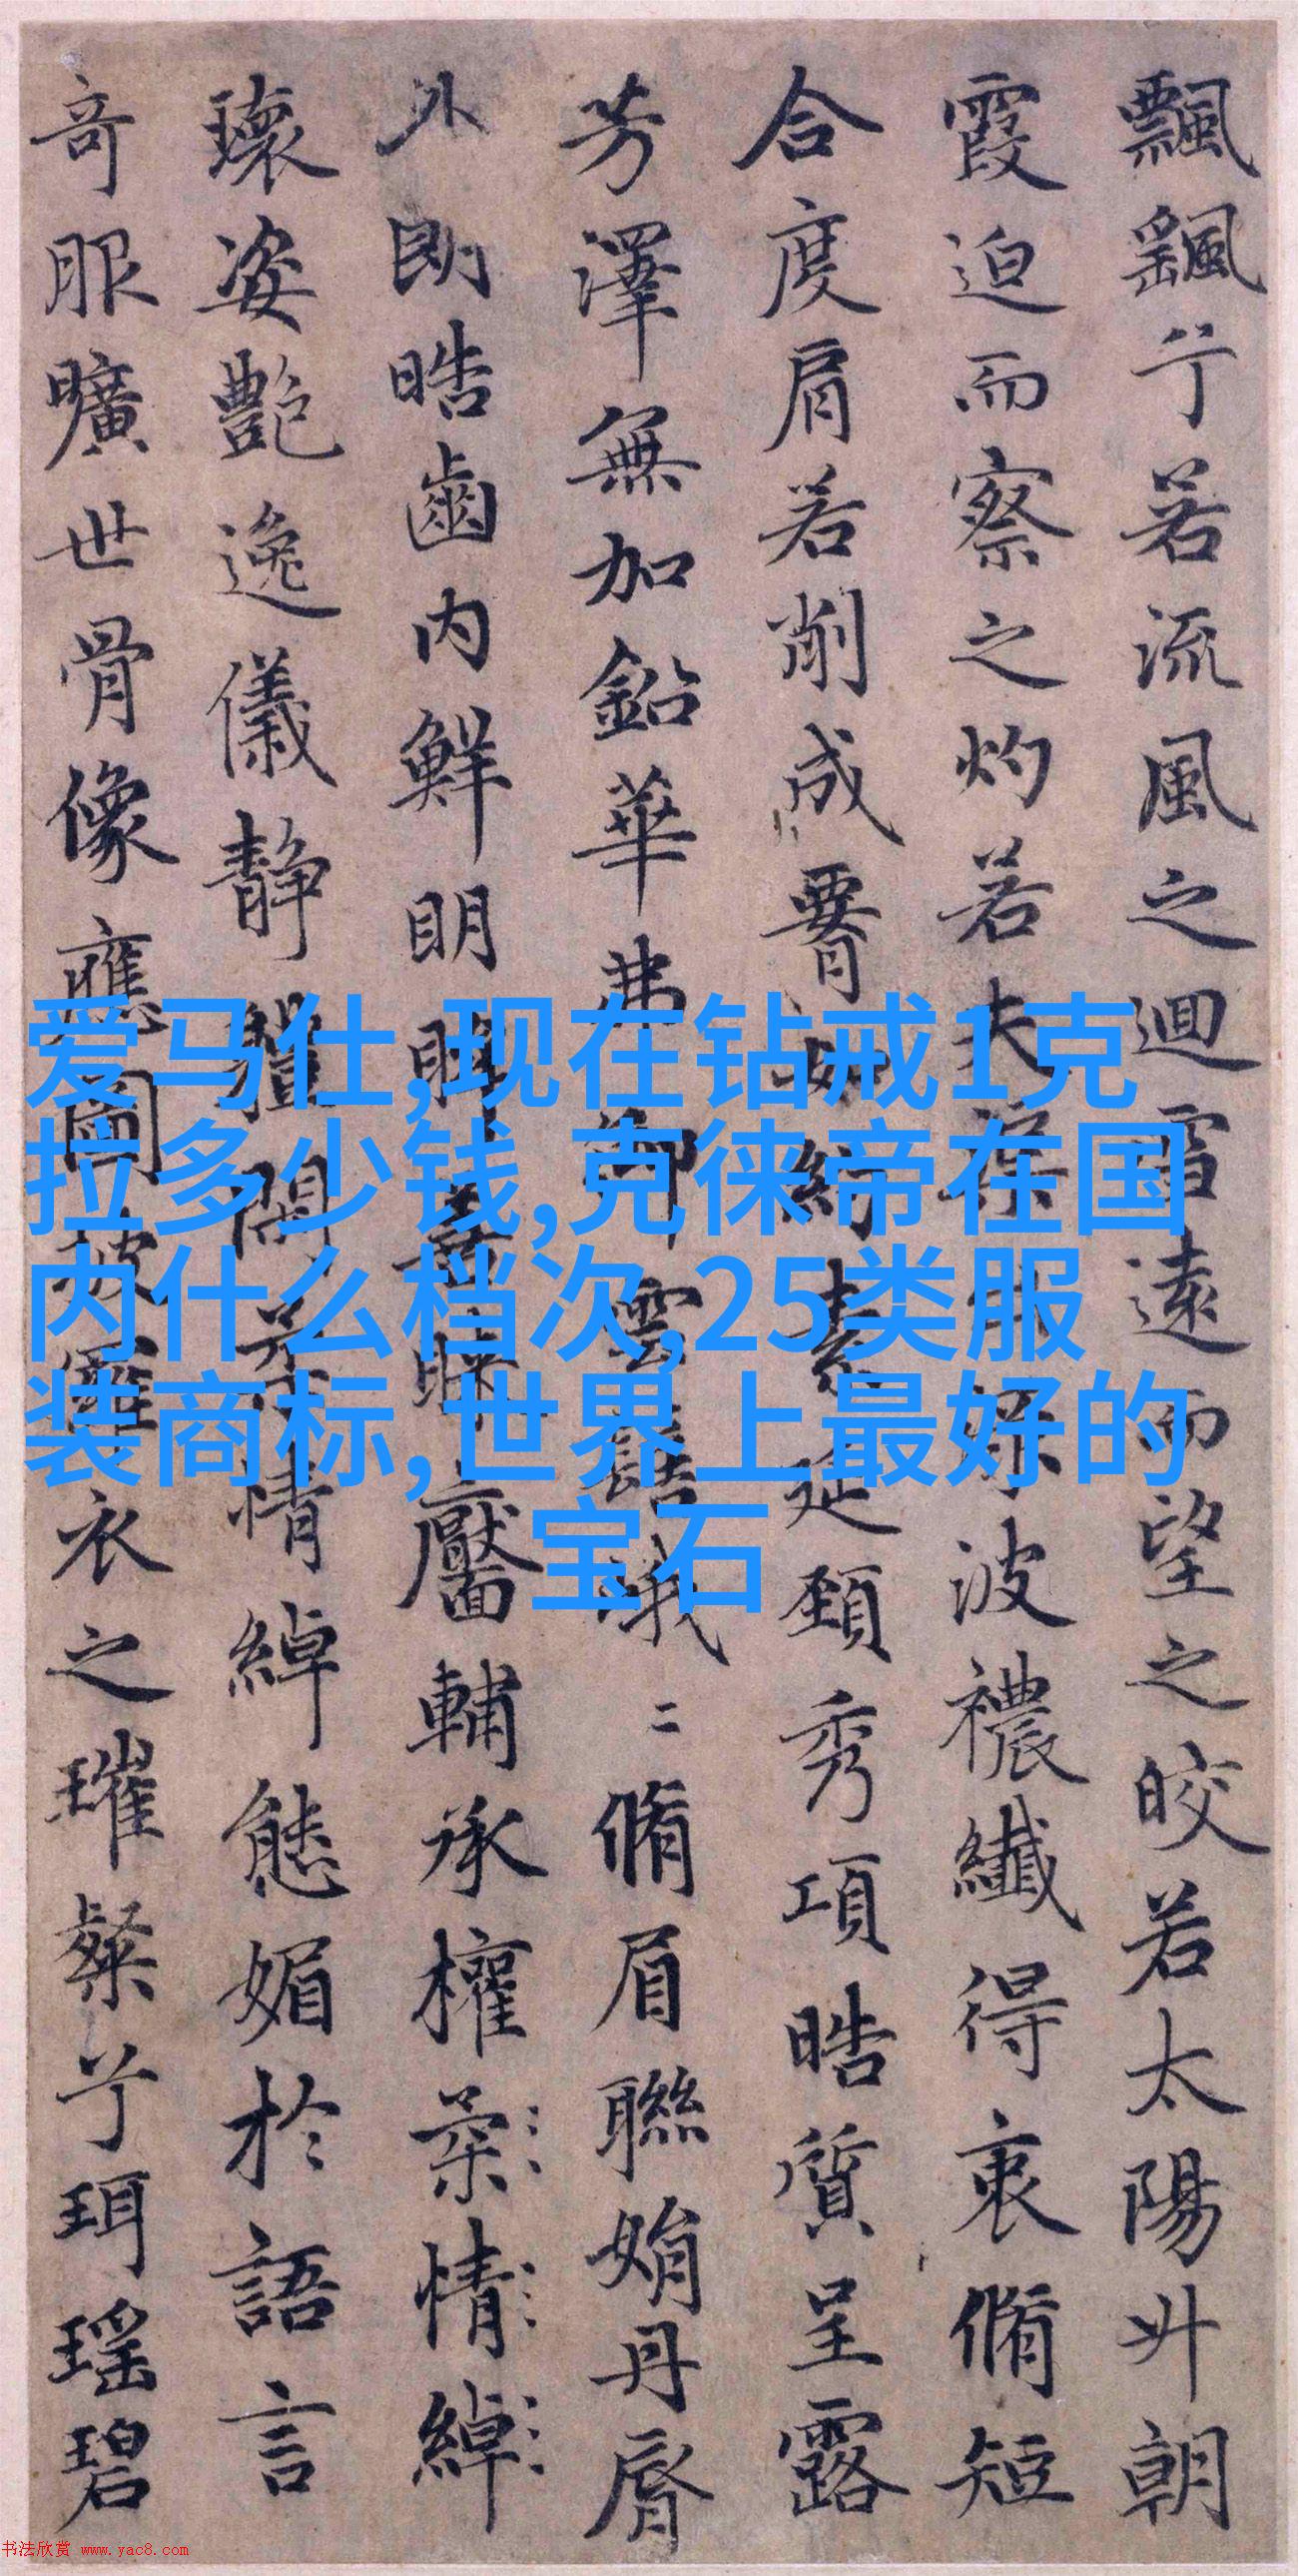 飄飖兮若流風之迴雪遠而望之皎若太陽升朝
霞迫而察之灼若夫渠出淥波襛纖得衷脩短
合度肩若削成腰如約素延頸秀項皓質呈露
芳澤無加鉛華弗御雲髻峩二脩眉聯娟丹脣
外朗皓齒內鮮明眸善睞靨輔承權柔情綽
瓌姿艷逸儀靜體閑柔情綽態媚於語言
奇服曠世骨像應圖披羅衣之璀粲兮珥瑤碧
爱马仕,现在钻戒1克
拉多少钱,克徕帝在国
内什么档次,25类服
装商标,世界上最好的
宝石
书法欣赏 www.yac8.com